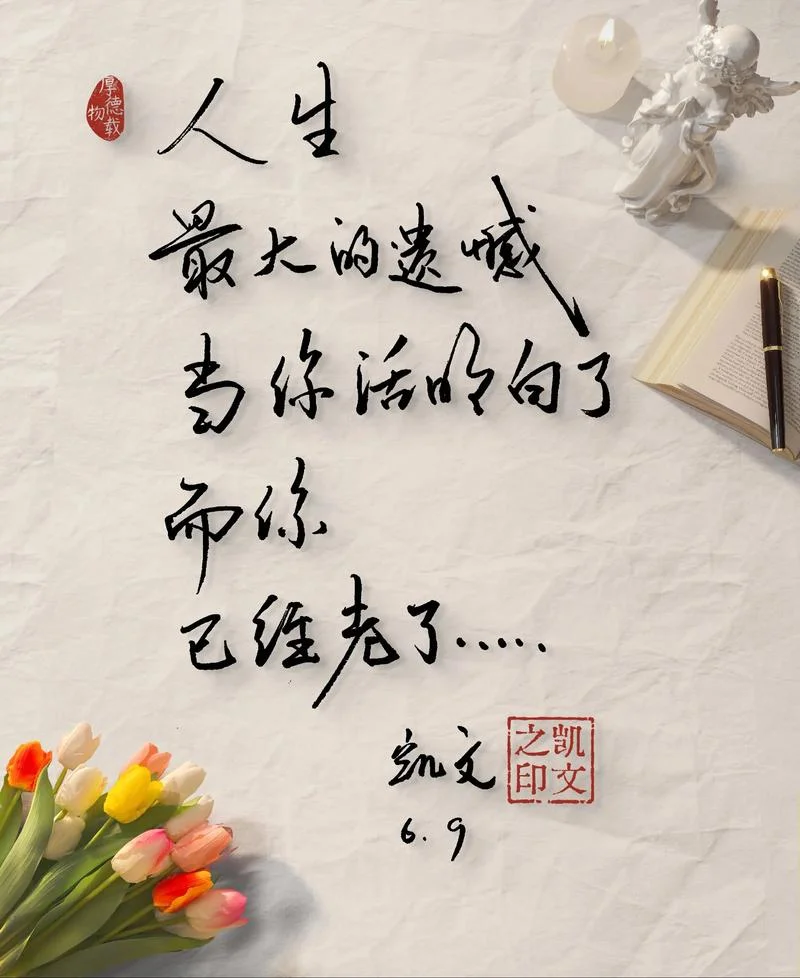 厚德载物
人生
最大的遗憾
当你活明白了
而你
已经老了.....
凯文
凯文之印
6.9